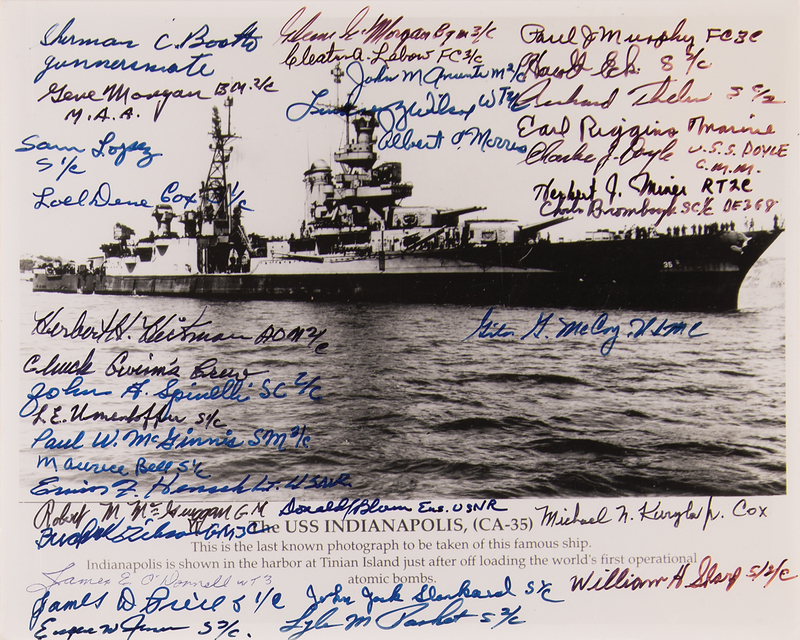 Sherman C. Booth
gunnersmate
Gene Morgan BM 2/c
M.A.A.
Sam Lopez
S 1/c
Loel Dene Cox S 1/c
Glenn G. Morgan BgM 3/c
Cleatus A. Lebow FC 3/c
John M
WT
Albert O. Morris
Paul J Murphy FC3C
S 1/c
S 2/c
Earl Riggins Marine
J. Doyle U.S.S. DOYLE
C.M.M.
Herbert J. Miner RT2C
SC/C DE368
35
Giles G. McCoy USMC
Herbert H.
Chuck Gwinn's Crew
John A. Spinelli SC 2/c
L.E. Umenhoffer S/c
Paul W. McGinnis SM 3/c
Maurice Bell S/c
USNR
Robert M. McGuiggan G.M.
Donald Blum Ens. USNR
Michael N. Kuryla Jr. Cox
The USS INDIANAPOLIS, (CA-35)
This is the last known photograph to be taken of this famous ship.
Indianapolis is shown in the harbor at Tinian Island just after off loading the world's first operational
atomic bombs.
James E. O'Donnell WT3
James D Price S 1/c
John Jack Slankard S/c
William H
S 2/c.
Lyle M S 2/c